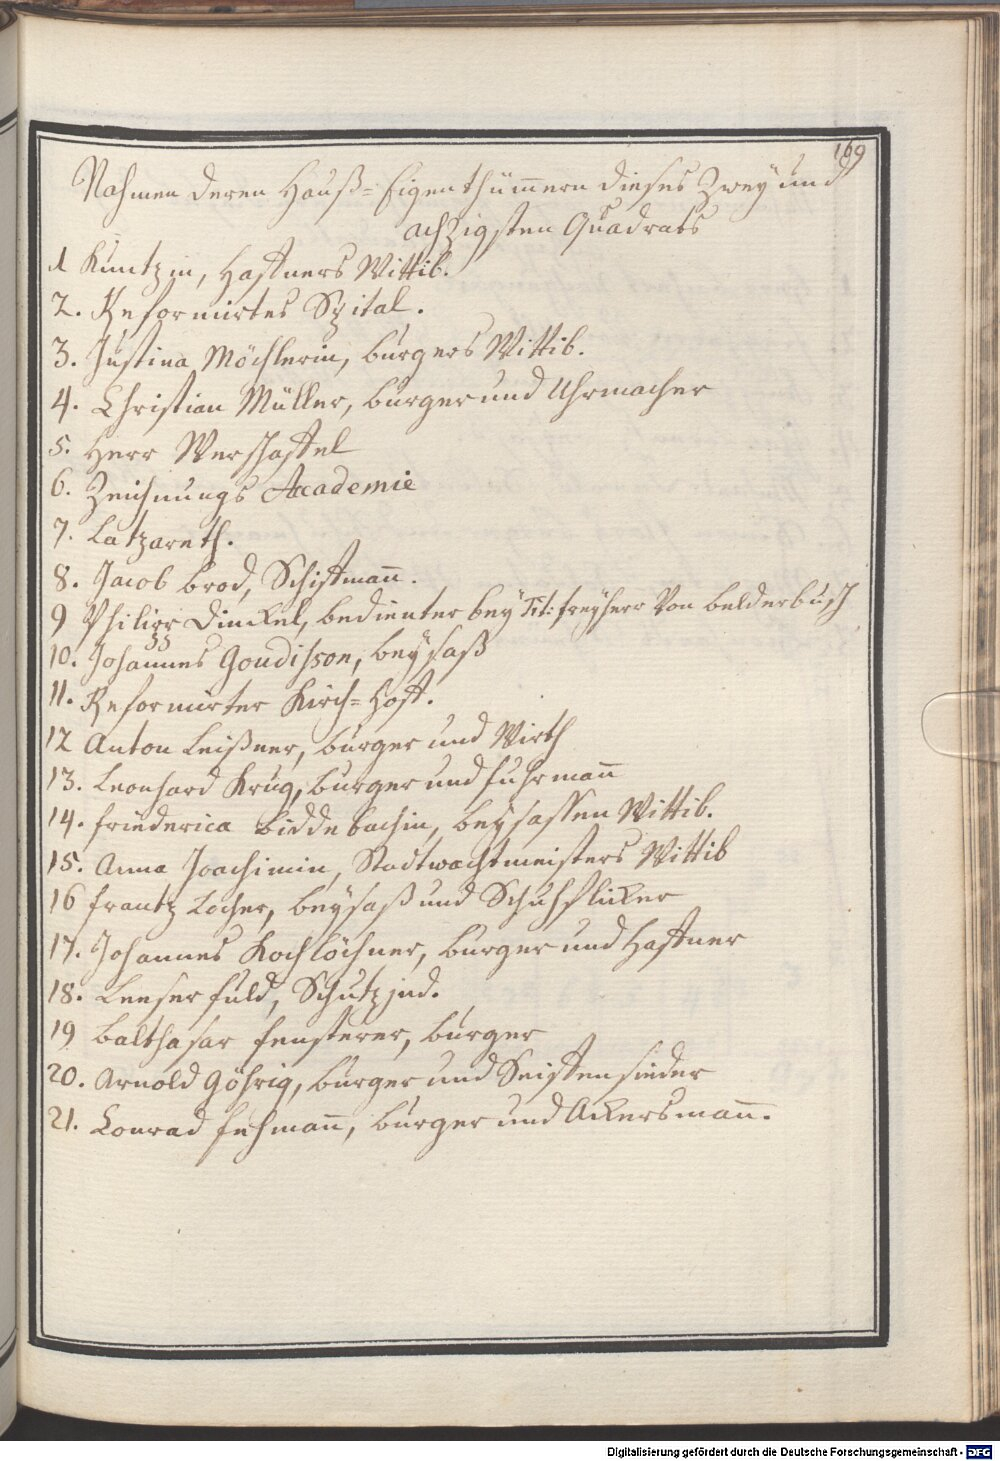 169
Nahmen deren Hauß=Eigenthümmern dieses Zwey und
achzigsten Quadrats
1 Kuntzin, Haffners Wittib.
2. Reformirtes Spital.
3. Justina Möchlerin, burgers Wittib.
4. Christian Müller, burger und Uhrmacher
5. Herr Verschaffel
6. Zeichnungs Academie
7. Latzareth.
8. Jacob brod, Schiffmañ.
9 Philipp Dinckel, bedienter bey Tit: freyherr Von belderbusch
10. Johannes Goudisson, beysaß
11. Reformirter Kirch=Hoff.
12 Anton Leißner, burger und Wirth
13. Leonhard Krug, burger und fuhrmañ
14. friederica biddebachin, beysassen Wittib.
15. Anna Joachimin, Stadtwachtmeisters Wittib
16 frantz Locher, beysaß und Schuhflicker
17. Johannes Kochlöchner, burger und Haffner
18. Leeser fuld, Schutzjud.
19 balthasar fensterer, burger
20. Arnold Göhrig, burger und Seiffensieder
21. Conrad fehmañ, burger und Ackersmañ.
Digitalisierung gefördert durch die Deutsche Forschungsgemeinschaft - DFG